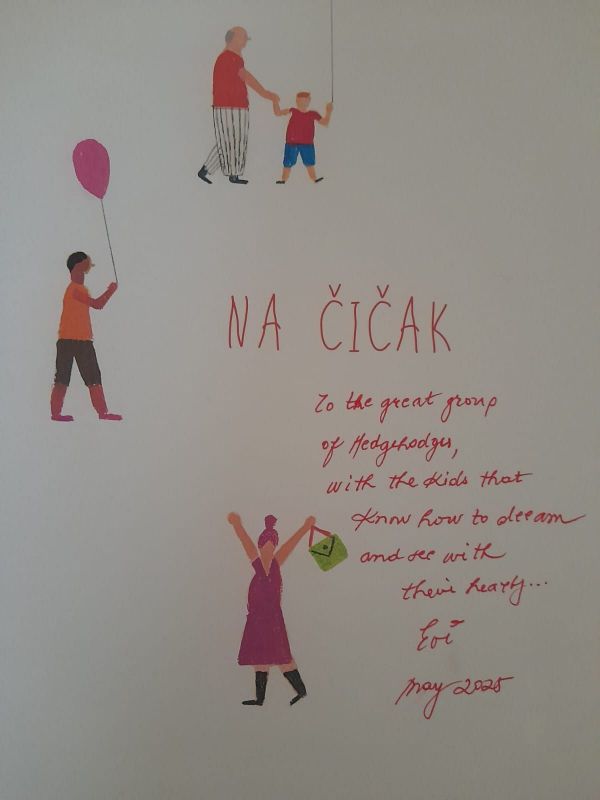 NA ČIČAK
To the great group
of Hedgehodges,
with the kids that
know how to dream
and see with
their hearts...
May 2025